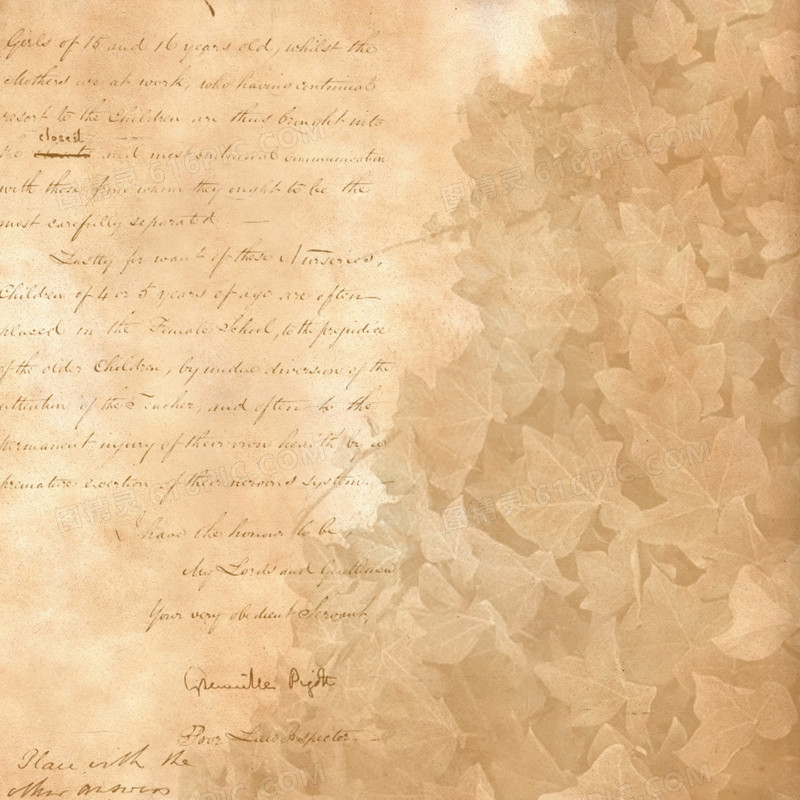 Girls of 15 and 16 years old, whilst the
Mothers are at work, who having continual
resort to the Children are thus brought into
the closest and most continual communication
with those from whom they ought to be the
most carefully separated —
Lastly for want of these Nurseries,
Children of 4 or 5 years of age are often
placed in the Female School, to the prejudice
of the older Children, by undue diversion of the
attention of the Teacher, and often to the
permanent injury of their own health by a
premature exertion of their nervous system. —
I have the honour to be,
My Lords and Gentlemen
Your very obedient Servant,
Grenville Pigott
Poor Law Inspector. —
Place with the
other answers